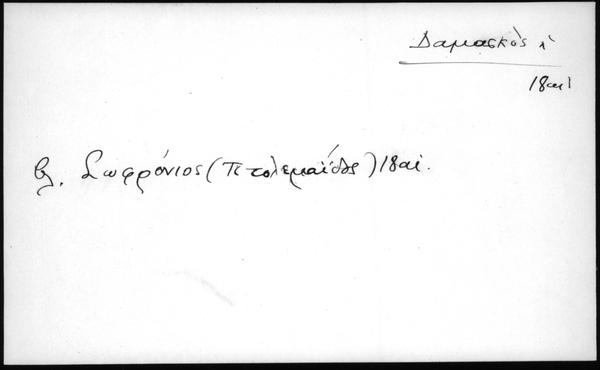 Δαμασκὸς
18αι
βλ. Σωφρόνιος (Πτολεμαΐδος) 18αι.